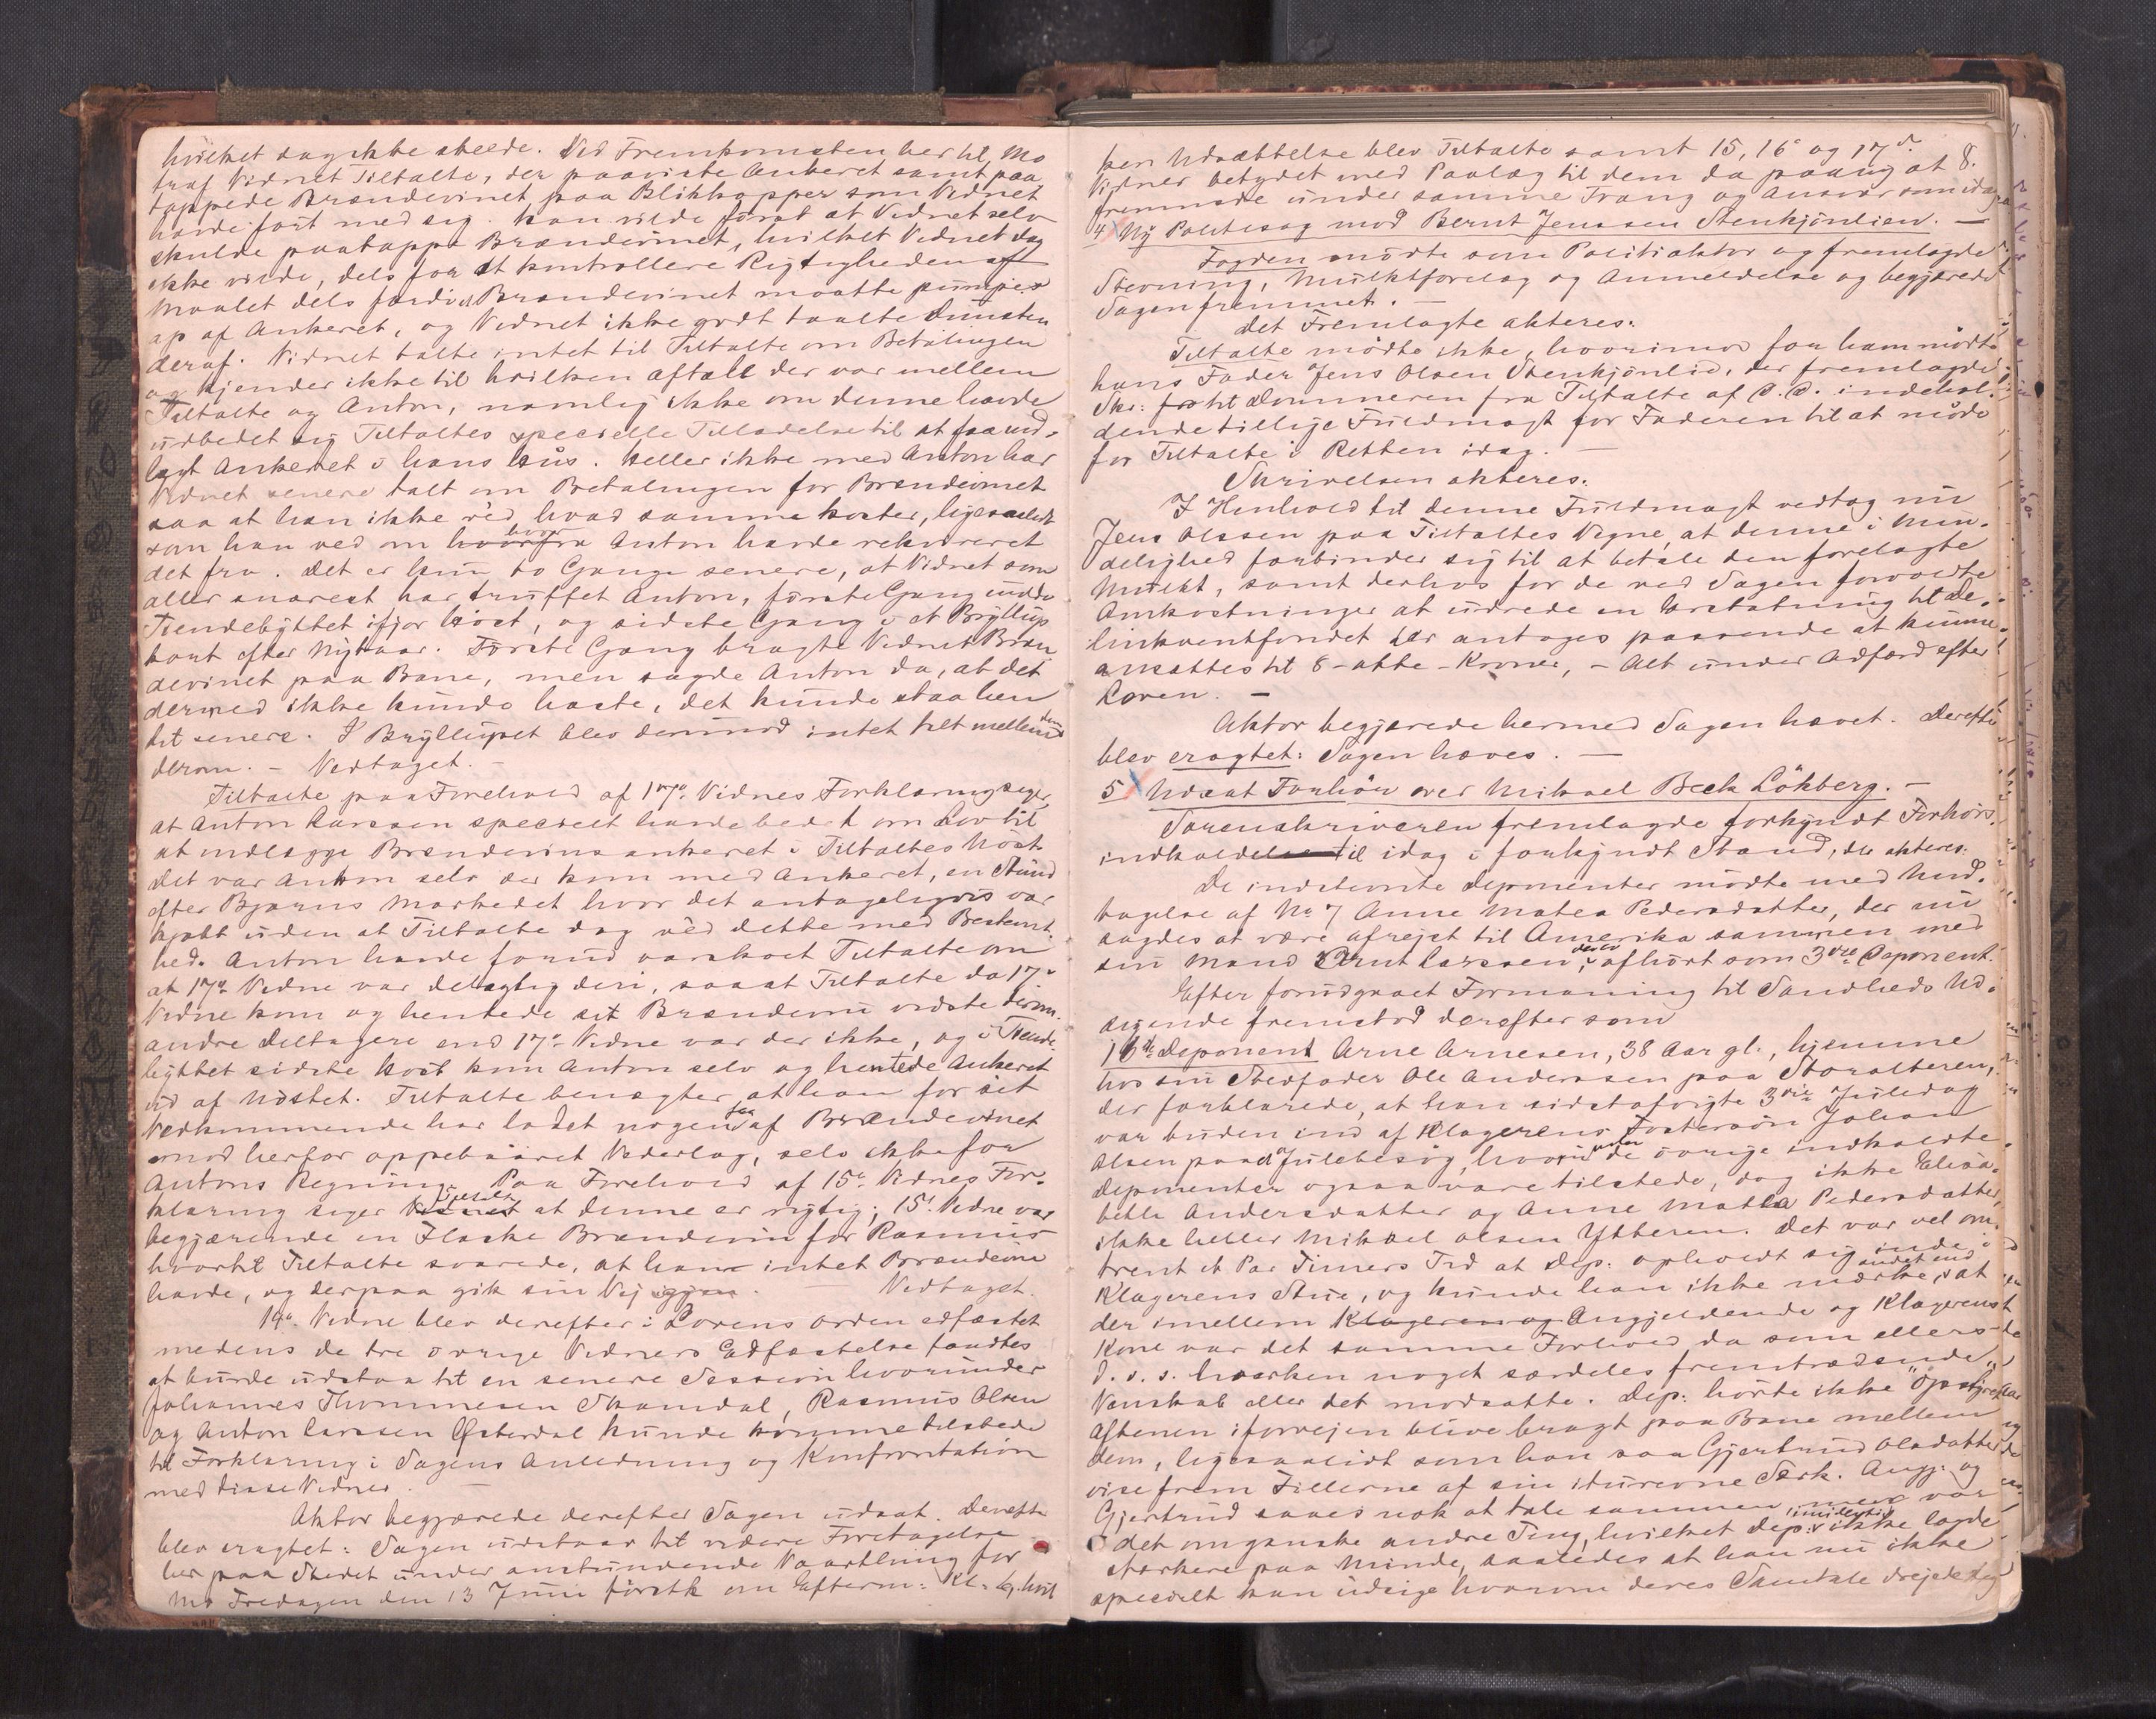 hvilket dog ikke skeede. Ved Fremkomsten her til Mo
traf Vidnet Tiltalte, der paaviste Ankeret samt paa
tappede Brændevinet paa Blikkopper som Vidnet
havde fört med sig. Han vilde först at Vidnet selv
skulde paatappe Brændevinet, hvilket Vidnet dog
ikke vilde, dels for at kontrollere Rigtigheden af
Maalet dels fordi Brændevinet maatte pumpes
op af Ankeret, og Vidnet ikke godt taalte Dunsten
deraf. Vidnet talte intet til Tiltalte om Betalingen
og kjender ikke til hvilken Aftale der var mellem
Tiltalte og Anton, namlig ikke om denne havde
udbedet sig Tiltaltes specielle Tilladelse til at faa ind-
lagt Ankeret i hans Hus. Heller ikke med Anton har
Vidnet senere talt om Betalingen for Brændevinet
saa at han ikke ved hvad samme koster, ligesaalidt
som han ved om hvorfra hvor Anton havde rekvireret
det fra. Det er kun to Gange senere, at Vidnet som
aller snarest har truffet Anton, förste Gang under
Tiendebyttet ifjor Höst, og sidste Gang i et Bryllup
kort efter Nytaar. Förste Gang bragte Vidnet Bræn
devinet paa Bane, men sagde Anton da, at det
dermed ikke kunde haste, det kunde staa hen
til senere. I Bryllupet blev derimod intet talt mellem dem
derom. - Vedtaget. -
Tiltalte paa Forehold af 17de Vidnes Forklaring siger,
at Anton Larssen specielt havde bedet om Lov til
at indlægge Brændevinsankeret i Tiltaltes Nöst.
Det var Anton selv der kom med Ankeret, en Stund
efter Bjørns Markedet hvor det antageligvis var
kjøbt uden at Tiltalte dog ved dette med Bestemt-
hed. Anton havde forud varskoet Tiltalte om
at 17de Vidne var delagtig deri, saaat Tiltalte da 17de
Vidne kom og hentede sit Brændevin vidste derom.
Andre Deltagere end 17de Vidne var der ikke, og i Tiende-
byttet sidste Höst kom Anton selv og hentede Ankeret
ud af Nöstet. Tiltalte benægter at han for sit
Vedkommende har ladet nogen faa af Brændevinet
mod herfor oppebaaret Vederlag, selv ikke for
Antons Regning. Paa Forehold af 15de Vidnes For-
klaring siger Vidnet Tiltalte at denne er rigtig; 15de Vidne var
begjærende en Flaske Brændevin for Rasmus
hvortil Tiltalte svarede, at han intet Brændevin
havde, og derpaa gik sin Vej igjen. Vedtaget.
14de Vidne blev derefter i Lovens Orden edfæstet
medens de tre övrige Vidners Edfæstelse fandtes
at burde udstaa til en senere Session hvorunder
Johannes Thommesen Skamdal, Rasmus Olsen
og Anton Larssen Østerdal kunde komme tilstede
til Forklaring i Sagens Anledning og Konfrontation
med disse Vidner.
Aktor begjærede derefter Sagen udsat. Derefter
blev eragtet: Sagen udstaar til videre Foretagelse
her paa Stedet under anstundende Vaarthing for
Mo Fredagen den 13 Juni förstk. om Efterm: Kl. 4, hvil
ken Udsættelse blev Tiltalte samt 15, 16de og 17de
Vidner betydet med Paalæg til dem da paany at 8.
fremmöde under samme Tvang og Ansvar som idag.
4 Ny Politisag mod Bernt Jenssen Stenkjönlien. -
Fogden mödte som Politiaktor og fremlagde
Stevning, Mulktforelæg og Anmeldelse og begjærede
Sagen fremmet. -
Det Fremlagte akteres.
Tiltalte mödte ikke, hvorimod for ham mödte
hans Fader Jens Olsen Stenkjönlid, der fremlagde
Skr: for til Dommeren fra Tiltalte af D. D. indehol-
dende tillige Fuldmagt for Faderen til at möde
for Tiltalte i Retten idag. -
Skrivelsen akteres.
I Henhold til denne Fuldmagt vedtog nu
Jens Olssen paa Tiltaltes Vegne, at denne i Min-
delighed forbinder sig til at betale den forelagte
Mulkt, samt derhos for de ved Sagen forvoldte
Omkostninger at udrede en Erstatning til De-
linkventfondet der antages passende at kunne
ansættes til 8 - otte - Kroner, - Alt under Adfærd efter
Loven. -
Aktor begjærede hermed Sagen hævet. Derefter
blev eragtet: Sagen hæves. -
5 Udsat Forhör over Mikael Beck Lökberg. -
Sorenskriveren fremlagde forkyndt Forhörs-
indkaldelse til idag i forkyndt Stand, der akteres.
De indstevnte Deponenter mödte med Und-
tagelse af No 7 Anne Matea Pedersdatter, der nu
sagdes at være afrejst til Amerika sammen med
sin Mand Arnt Larssen, der er afhört som 3die Deponent.
Efter forudgaaet Formaning til Sandheds Ud-
sigende fremstod derefter som
16de Deponent Arne Arnesen, 38 Aar gl., hjemme
hos sin Stedfader Ole Anderssen paa Storalteren,
der forklarede, at han sidstafvigte 3die Juledag
var buden ind af Klagerens Fostersön Johan
Olsen paa et Julebesög, hvorunder de övrige indkaldte
Deponenter ogsaa vare tilstede, dog ikke Elisa-
beth Andersdatter og Anne Matea Pedersdatter,
ikke heller Mikael Olsen Ytteren. Det var vel om-
trent et Par Timers Tid at Dep. opholdt sig inde i
Klagerens Stue, og kunde han ikke mærke andet end at
der imellem Klageren og Angjeldende og Klagerens
Kone var det samme Forhold da som ellers
d. v. s. hverken noget særdeles fremtrædende
Venskab eller det modsatte. Dep: hörte ikke
Aftenen iforvejen blive bragt paa Bane mellem
dem, ligesaalidt som han saa Gjertrud Olsdatter
vise frem Fillerne af sin iturevne Særk. Angj. og
Gjertrud saaes nok at tale sammen, men var
det om ganske andre Ting, hvilket Dep: imidlertid ikke lagde
stærkere paa Minde, saaledes at han nu ikke
specielt kan udsige hvorom deres Samtale drejede sig